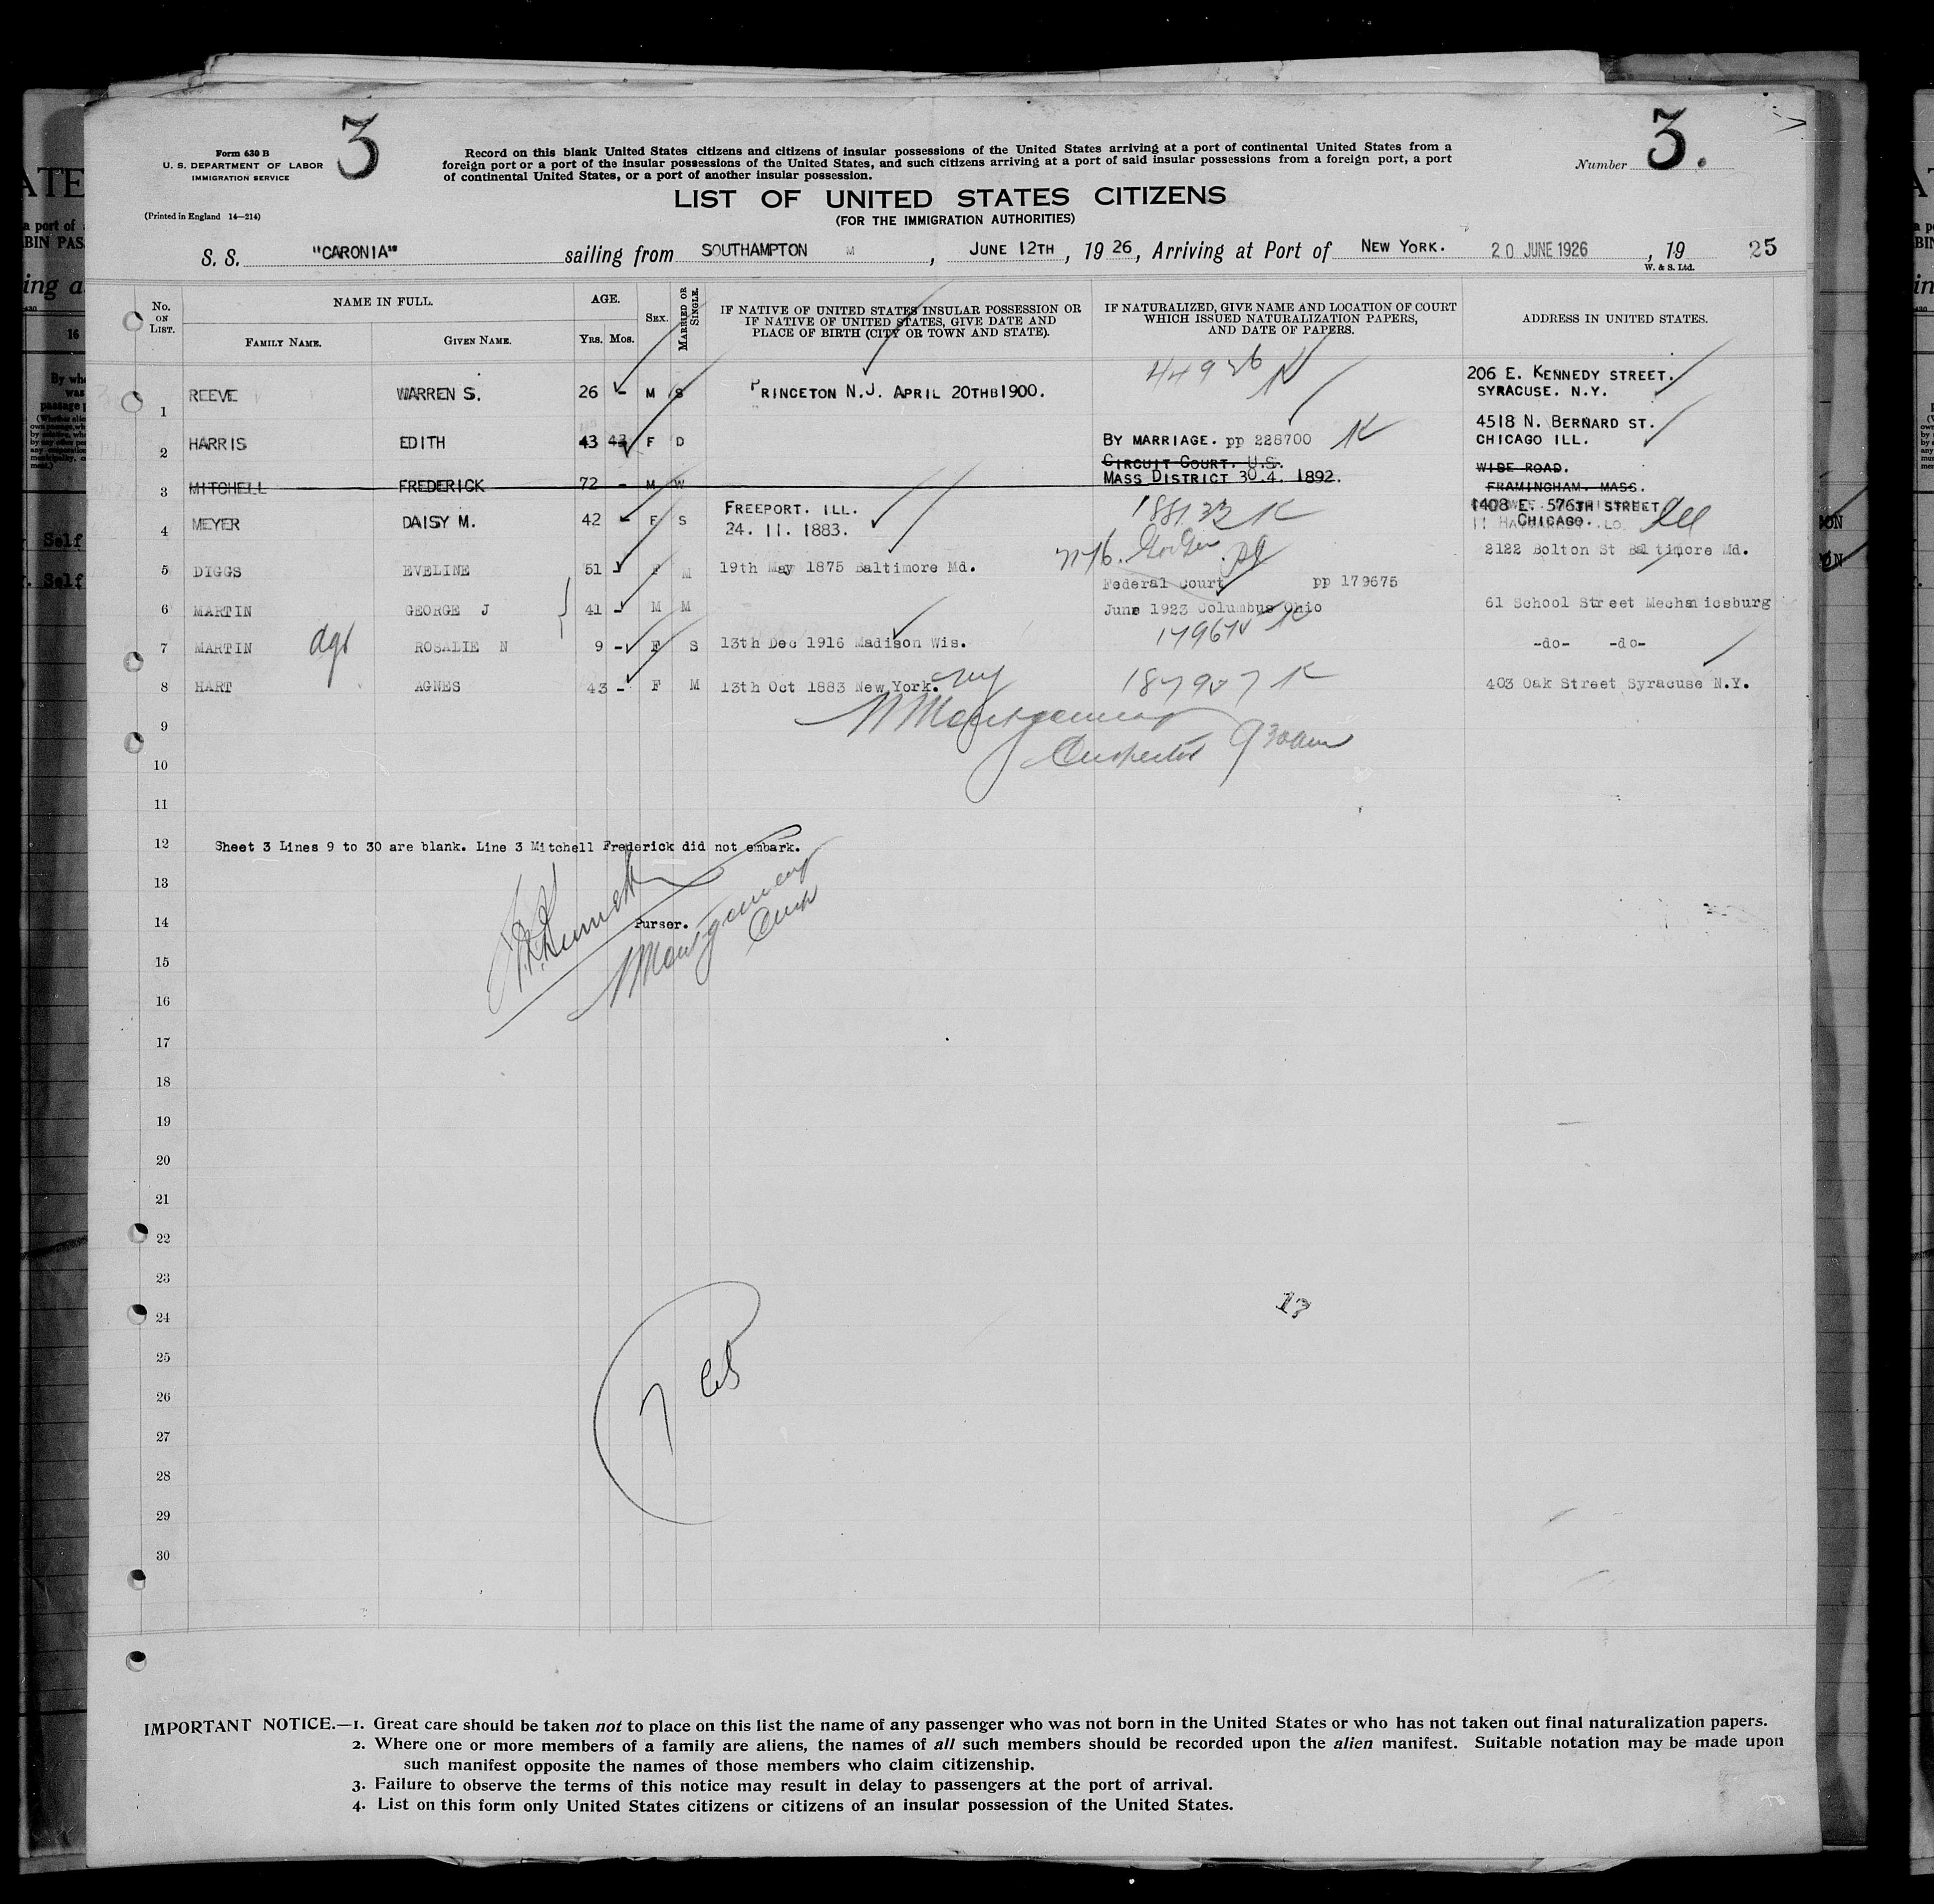 3
3.
Form 630 B
U. S. DEPARTMENT OF LABOR
IMMIGRATION SERVICE
(Printed in England 14—214)
Record on this blank United States citizens and citizens of insular possessions of the United States arriving at a port of continental United States from a
foreign port or a port of the insular possessions of the United States, and such citizens arriving at a port of said insular possessions from a foreign port, a port
of continental United States, or a port of another insular possession.
Number
LIST OF UNITED STATES CITIZENS
(FOR THE IMMIGRATION AUTHORITIES)
S. S. "CARONIA" sailing from SOUTHAMPTON M, JUNE 12TH, 19 26, Arriving at Port of NEW YORK. 20 JUNE 1926, 19 25
W. & S. Ltd.
No. ON LIST.
NAME IN FULL.
FAMILY NAME.
GIVEN NAME.
AGE.
YRS. MOS.
SEX.
MARRIED OR SINGLE.
IF NATIVE OF UNITED STATES INSULAR POSSESSION OR
IF NATIVE OF UNITED STATES, GIVE DATE AND
PLACE OF BIRTH (CITY OR TOWN AND STATE).
IF NATURALIZED, GIVE NAME AND LOCATION OF COURT
WHICH ISSUED NATURALIZATION PAPERS,
AND DATE OF PAPERS.
ADDRESS IN UNITED STATES.
1 REEVE WARREN S. 26 - M S PRINCETON N.J. APRIL 20THB1900. 206 E. KENNEDY STREET.
SYRACUSE. N.Y.
2 HARRIS EDITH 43 43 F D BY MARRIAGE. pp 228700 K 4518 N. BERNARD ST.
CHICAGO ILL.
3 MITCHELL FREDERICK 72 - M W CIRCUIT COURT. U.S.
MASS DISTRICT 30.4. 1892.
WIDE ROAD.
FRAMINGHAM. MASS.
4 MEYER DAISY M. 42 - F S FREEPORT. ILL.
24. 11. 1883.
1408 E. 576TH STREET
CHICAGO. Ill
5 DIGGS EVELINE 51 F M 19th May 1875 Baltimore Md. 2122 Bolton St Baltimore Md.
6 MARTIN GEORGE J 41 - M M Federal Court pp 179675
June 1923 Columbus Ohio
61 School Street Mechanicsburg
7 MARTIN ROSALIE N 9 - F S 13th Dec 1916 Madison Wis. -do- -do-
8 HART AGNES 43 - F M 13th Oct 1883 New York. NY 403 Oak Street Syracuse N.Y.
Montgomery
Inspector 9 30 am
9
10
11
12
Sheet 3 Lines 9 to 30 are blank. Line 3 Mitchell Frederick did not embark.
13
14
Purser.
Montgomery
Insp
15
16
17
18
19
20
21
22
23
24
25
26
27
28
29
30
13
IMPORTANT NOTICE.—1. Great care should be taken not to place on this list the name of any passenger who was not born in the United States or who has not taken out final naturalization papers.
2. Where one or more members of a family are aliens, the names of all such members should be recorded upon the alien manifest. Suitable notation may be made upon
such manifest opposite the names of those members who claim citizenship.
3. Failure to observe the terms of this notice may result in delay to passengers at the port of arrival.
4. List on this form only United States citizens or citizens of an insular possession of the United States.